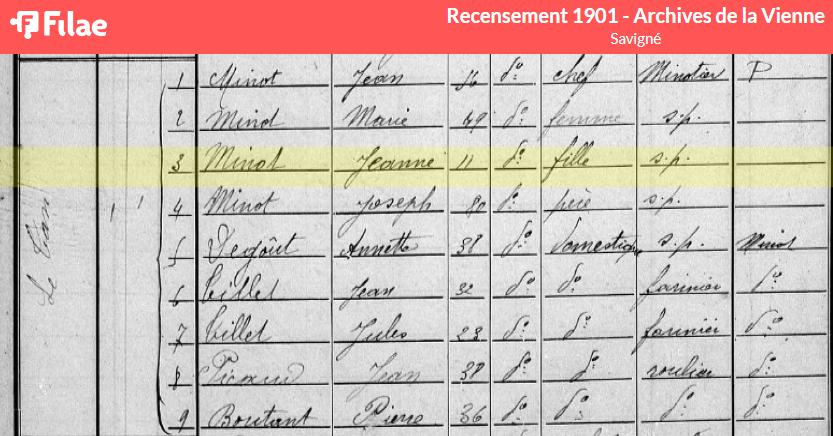 Filae
Recensement 1901 - Archives de la Vienne
Savigné
1 Minot Jean 56 do chef Minotier P
2 Minot Marie 49 do femme s.p.
3 Minot Jeanne 11 do fille s.p.
4 Minot Joseph 80 do père s.p.
5 Degoût Annette 38 do domestique s.p. Minot
6 Tillet Jean 32 do do farinier do
7 Tillet Jules 23 do do farinier do
8 Picaud Jean 38 do do roulier do
9 Boutant Pierre 36 do do do do
Le